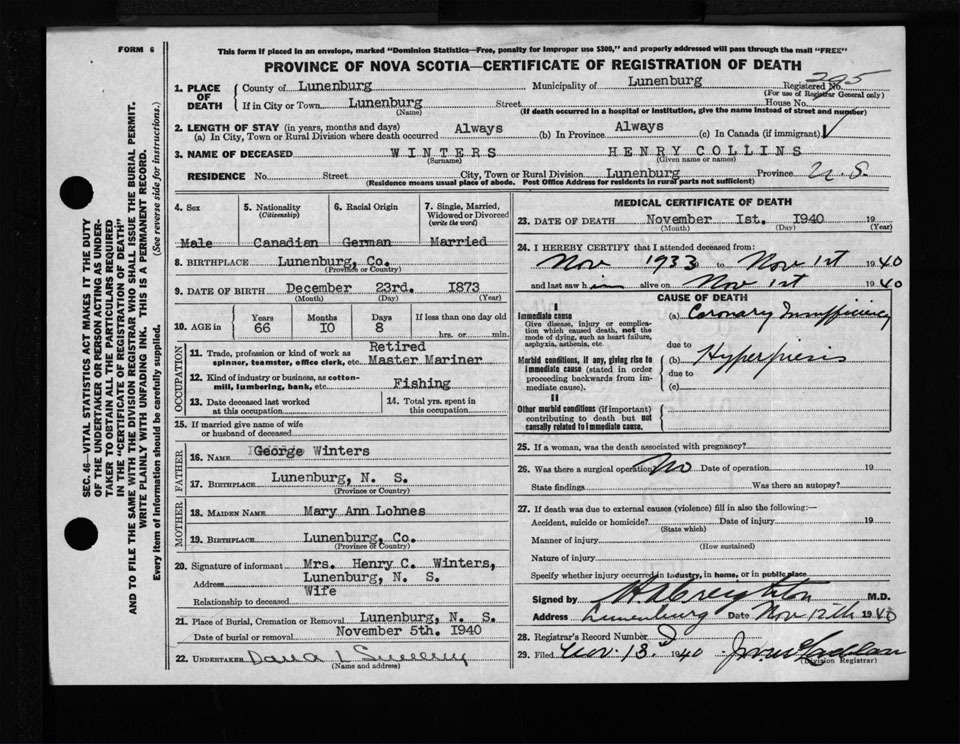 FORM 6
This form if placed in an envelope, marked "Dominion Statistics—Free, penalty for improper use $300," and properly addressed will pass through the mail "FREE"
PROVINCE OF NOVA SCOTIA—CERTIFICATE OF REGISTRATION OF DEATH
SEC. 46—VITAL STATISTICS ACT MAKES IT THE DUTY
OF THE UNDERTAKER OR PERSON ACTING AS UNDER-
TAKER TO OBTAIN ALL THE PARTICULARS REQUIRED
IN THE "CERTIFICATE OF REGISTRATION OF DEATH"
AND TO FILE THE SAME WITH THE DIVISION REGISTRAR WHO SHALL ISSUE THE BURIAL PERMIT.
WRITE PLAINLY WITH UNFADING INK. THIS IS A PERMANENT RECORD.
Every item of information should be carefully supplied. (See reverse side for instructions.)
1. PLACE OF DEATH County of Lunenburg Municipality of Lunenburg Registered No. 295
(For use of Registrar General only)
If in City or Town Lunenburg Street House No.
(Name) (If death occurred in a hospital or institution, give the name instead of street and number)
2. LENGTH OF STAY (in years, months and days)
(a) In City, Town or Rural Division where death occurred Always (b) In Province Always (c) In Canada (if immigrant) √
3. NAME OF DECEASED WINTERS HENRY COLLINS
(Surname) (Given name or names)
RESIDENCE No. Street City, Town or Rural Division Lunenburg Province N.S.
(Residence means usual place of abode. Post Office Address for residents in rural parts not sufficient)
4. Sex 5. Nationality (Citizenship) 6. Racial Origin 7. Single, Married, Widowed or Divorced (write the word)
Male Canadian German Married
8. BIRTHPLACE Lunenburg, Co.
(Province or Country)
9. DATE OF BIRTH December 23rd. 1873
(Month) (Day) (Year)
10. AGE in Years Months Days If less than one day old
66 10 8 hrs. or min.
OCCUPATION
11. Trade, profession or kind of work as spinner, teamster, office clerk, etc. Retired Master Mariner
12. Kind of industry or business, as cotton-mill, lumbering, bank, etc. Fishing
13. Date deceased last worked at this occupation 14. Total yrs. spent in this occupation
15. If married give name of wife or husband of deceased
FATHER
16. NAME George Winters
17. BIRTHPLACE Lunenburg, N. S.
(Province or Country)
MOTHER
18. MAIDEN NAME Mary Ann Lohnes
19. BIRTHPLACE Lunenburg, Co.
(Province or Country)
20. Signature of informant Mrs. Henry C. Winters,
Address Lunenburg, N. S.
Relationship to deceased Wife
21. Place of Burial, Cremation or Removal Lunenburg, N. S.
Date of burial or removal November 5th. 1940
22. UNDERTAKER
(Name and address)
MEDICAL CERTIFICATE OF DEATH
23. DATE OF DEATH November 1st. 1940 19
(Month) (Day) (Year)
24. I HEREBY CERTIFY that I attended deceased from:
Nov 1933 to Nov 1st 1940
and last saw him alive on Nov 1st 1940
CAUSE OF DEATH
I
Immediate cause
Give disease, injury or complication which caused death, not the mode of dying, such as heart failure, asphyxia, asthenia, etc.
(a) Coronary Insufficiency
due to
Morbid conditions, if any, giving rise to immediate cause (stated in order proceeding backwards from immediate cause).
(b) Hyperpiesis
due to
(c)
II
Other morbid conditions (if important) contributing to death but not causally related to immediate cause.
25. If a woman, was the death associated with pregnancy?
26. Was there a surgical operation No Date of operation 19
State findings Was there an autopsy?
27. If death was due to external causes (violence) fill in also the following:—
Accident, suicide or homicide? Date of injury 19
(State which)
Manner of injury
(How sustained)
Nature of injury
Specify whether injury occurred in industry, in home, or in public place
Signed by H A Creighton M.D.
Address Lunenburg Date Nov 12th 1940
28. Registrar's Record Number
29. Filed Nov. 13. 1940
(Division Registrar)